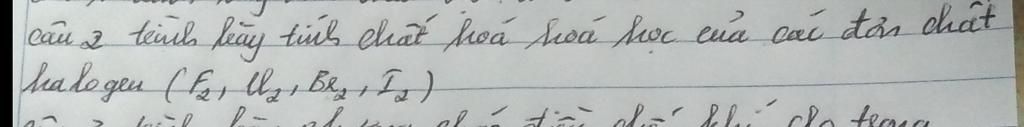 câu 2 trình bày tính chất hoá hoá học của các đơn chất
halogen (F2, Cl2, Br2, I2)